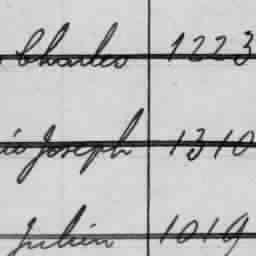 Charles 1223
Joseph 1310
Julien 1019